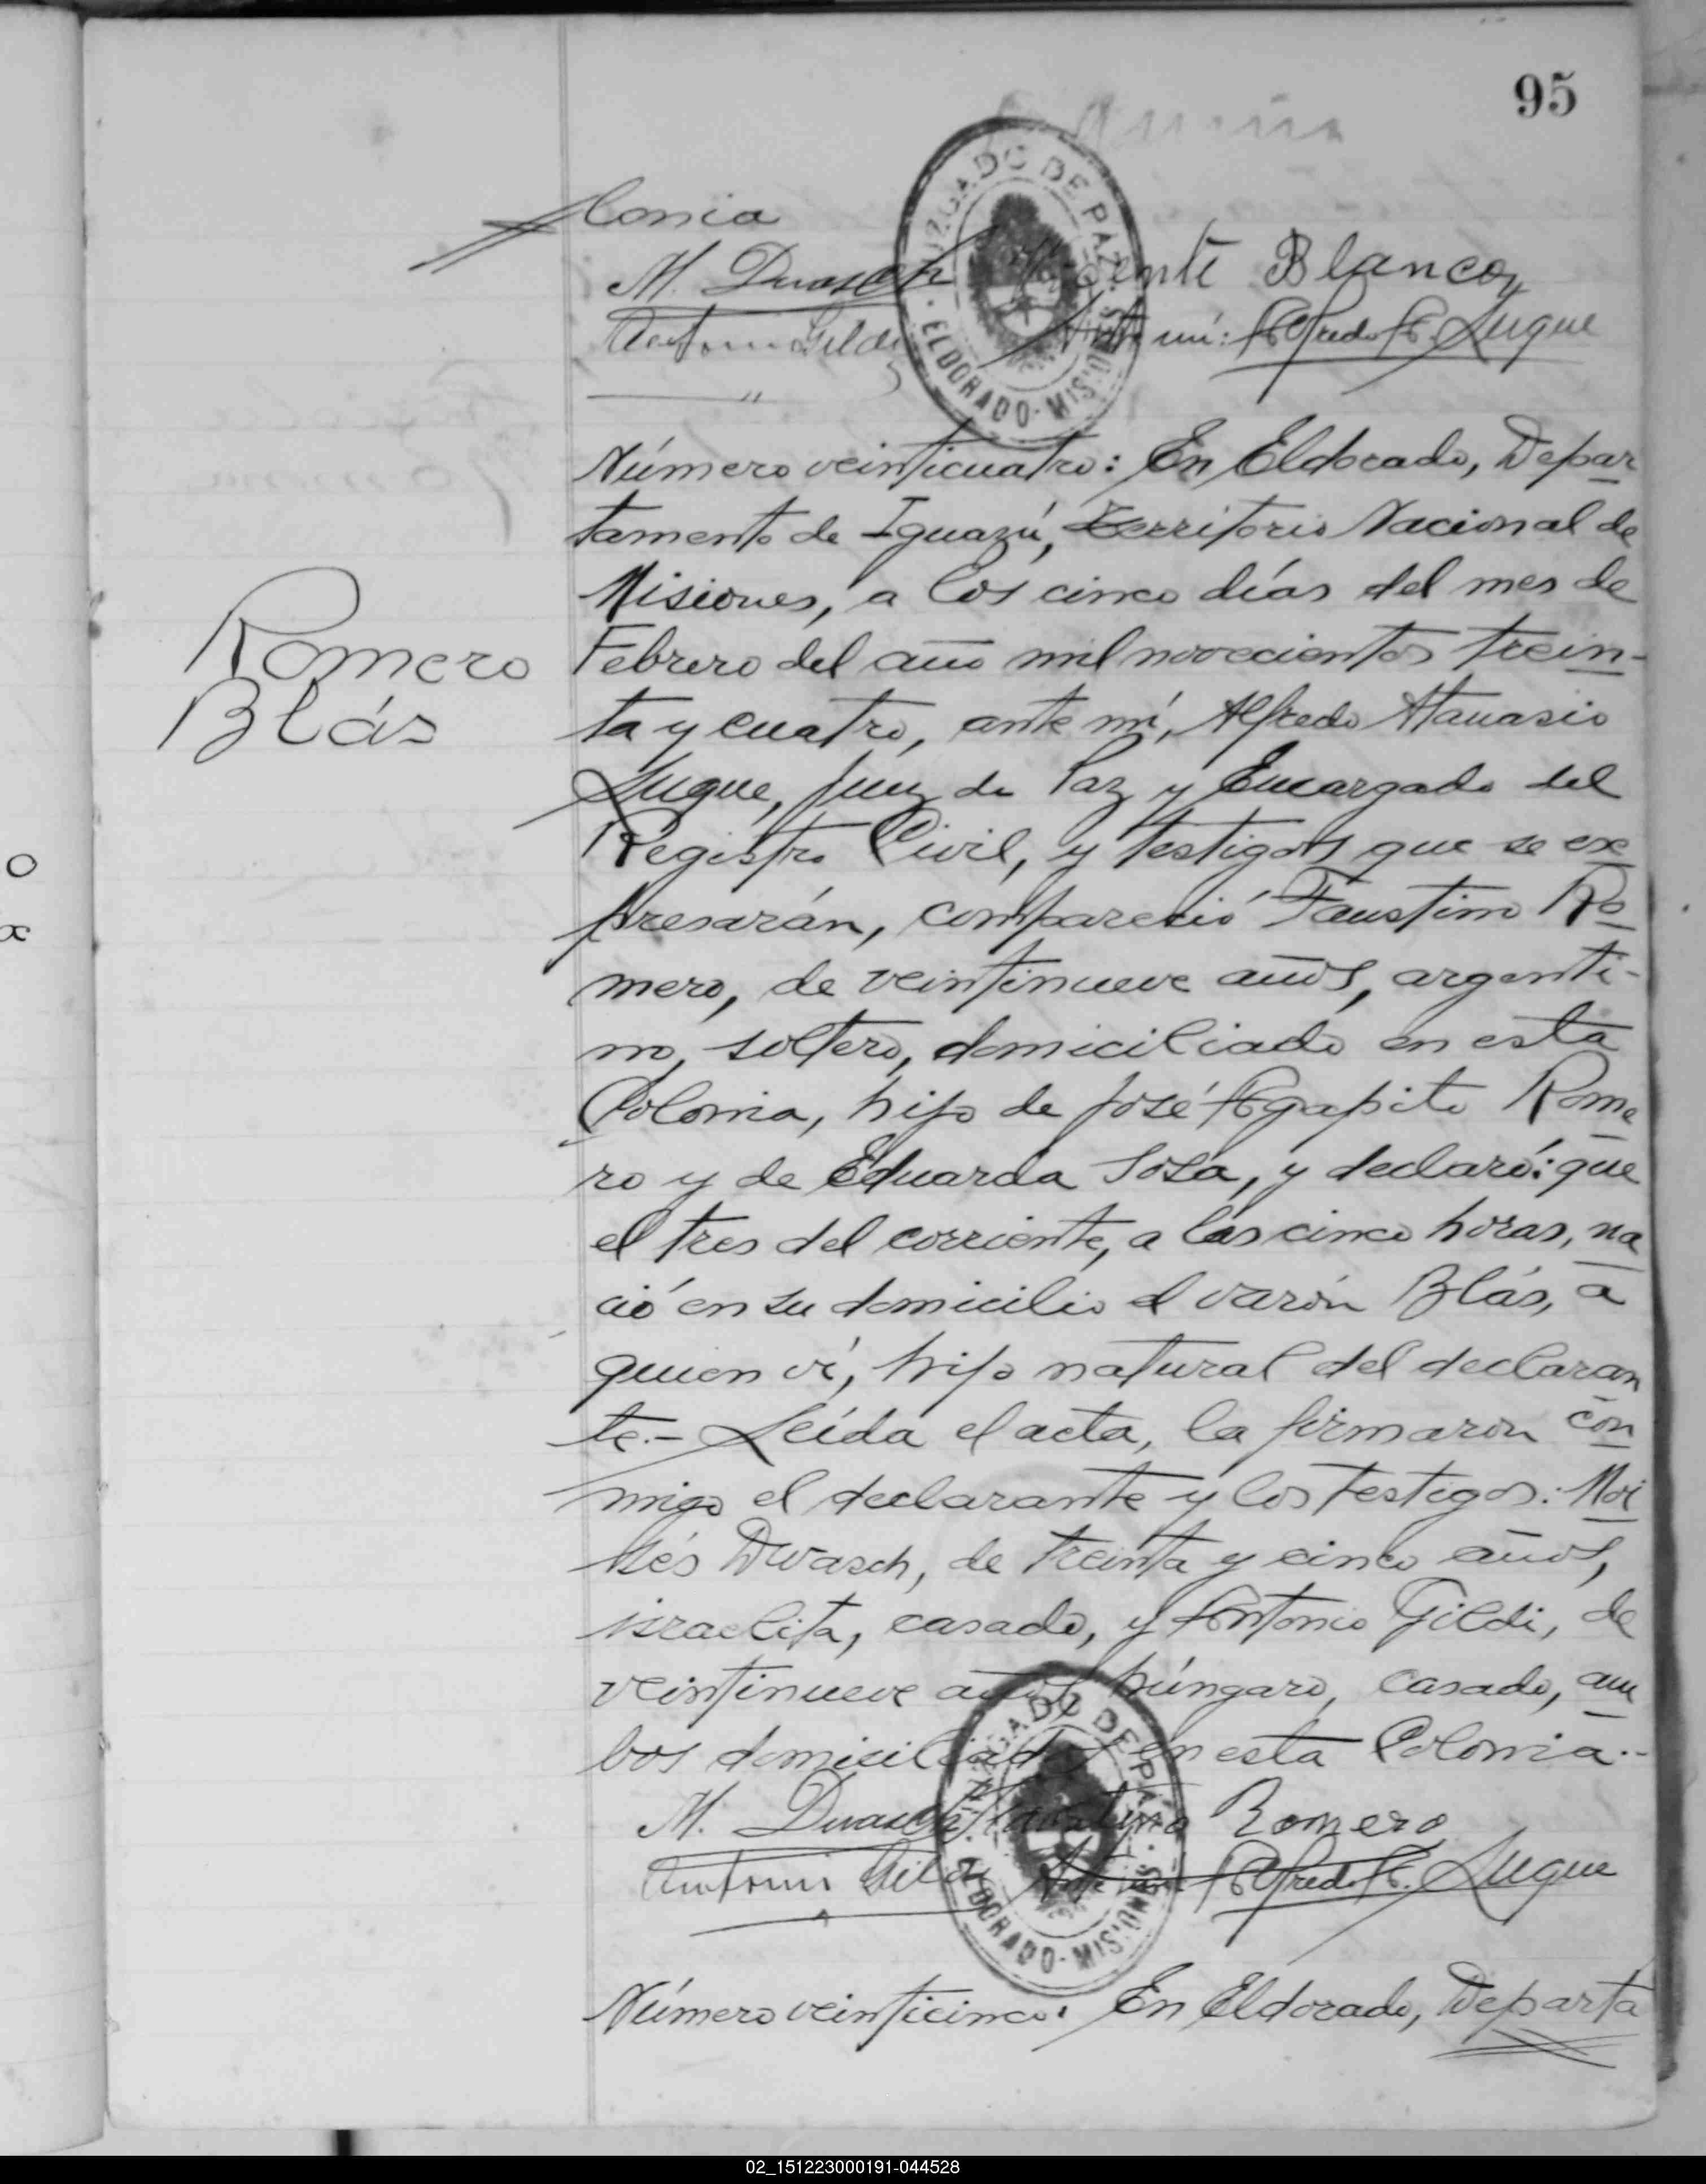 95
lonia
M. Dwasch Vicente Blanco
Antoni Gildi Ante mí: Alfredo A. Luque
JUZGADO DE PAZ
ELDORADO - MISIONES
Número veinticuatro: En Eldorado, Depar
tamento de Iguazú, Territorio Nacional de
Misiones, a los cinco días del mes de
Romero
Blás
Febrero del año mil novecientos trein-
ta y cuatro, ante mí, Alfredo Atanasio
Luque, Juez de Paz y Encargado del
Registro Civil, y testigos que se ex
presarán, compareció Faustino Ro
mero, de veintinueve años, argenti-
no, soltero, domiciliado en esta
Colonia, hijo de José Agapito Rome
ro y de Eduarda Sosa, y declaró: que
el tres del corriente, a las cinco horas, na
ció en su domicilio el varón Blás, a
quien ví, hijo natural del declaran
te.- Leída el acta, la firmaron con
migo el declarante y los testigos: Moi
sés Dwasch, de treinta y cinco años,
israelita, casado, y Antonio Gildi, de
veintinueve años, húngaro, casado, am
bos domiciliados en esta Colonia.-
M. Dwasch Faustino Romero
Antoni Gildi Ante mí: Alfredo A. Luque
JUZGADO DE PAZ
ELDORADO - MISIONES
Número veinticinco: En Eldorado, Departa
02_151223000191-044528